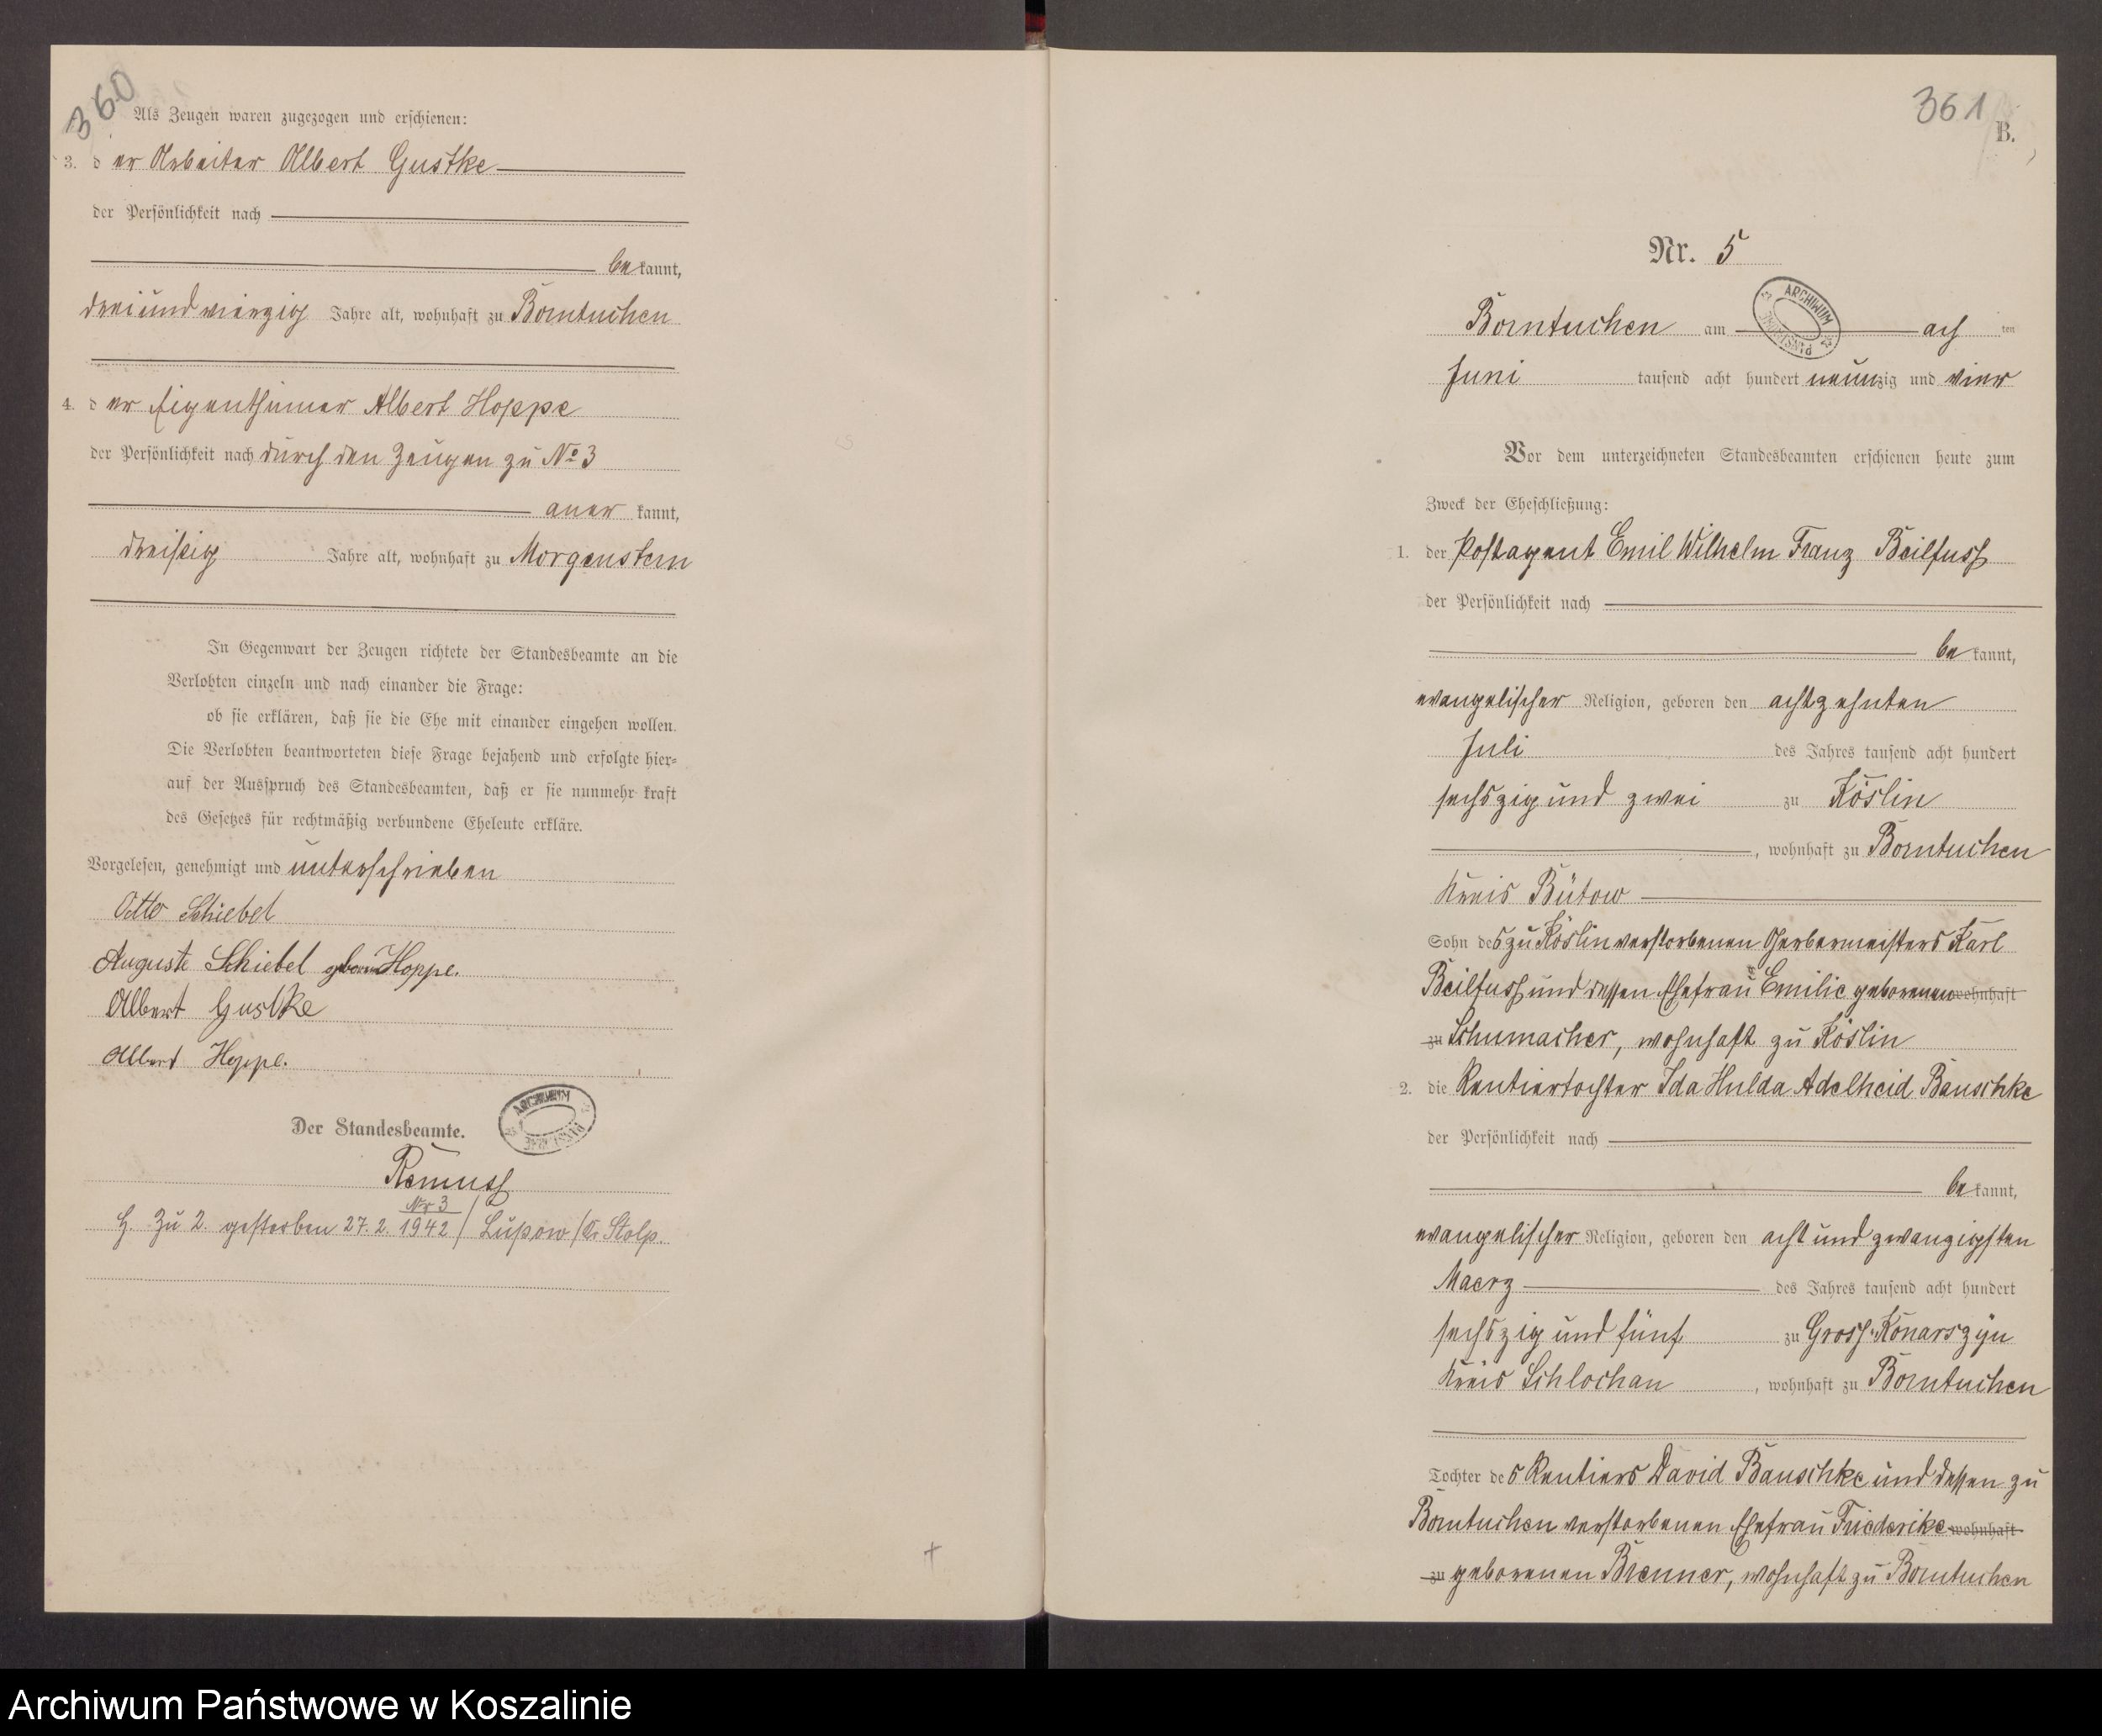 360
Als Zeugen waren zugezogen und erschienen:
3. der Arbeiter Albert Gustke
der Persönlichkeit nach
bekannt,
dreiundvierzig Jahre alt, wohnhaft zu Borntuchen
4. der Eigenthümer Albert Hoppe
der Persönlichkeit nach durch den Zeugen zu No 3
anerkannt,
dreißig Jahre alt, wohnhaft zu Morgenstern
In Gegenwart der Zeugen richtete der Standesbeamte an die
Verlobten einzeln und nach einander die Frage:
ob sie erklären, daß sie die Ehe mit einander eingehen wollen.
Die Verlobten beantworteten diese Frage bejahend und erfolgte hier-
auf der Ausspruch des Standesbeamten, daß er sie nunmehr kraft
des Gesetzes für rechtmäßig verbundene Eheleute erkläre.
Vorgelesen, genehmigt und unterschrieben
Otto Schiebel
Auguste Schiebel geborene Hoppe.
Albert Gustke
Albert Hoppe.
Der Standesbeamte.
ARCHIWUM PAŃSTWOWE
Remuss
Nr 3
zu 2. gestorben 27.2.1942 / Lupow / Kr. Stolp.
361
B.
Nr. 5
ARCHIWUM PAŃSTWOWE
Borntuchen am achten
Juni tausend acht hundert neunzig und vier
Vor dem unterzeichneten Standesbeamten erschienen heute zum
Zweck der Eheschließung:
1. der Postagent Emil Wilhelm Franz Beilfuss
der Persönlichkeit nach
bekannt,
evangelischer Religion, geboren den achtzehnten
Juli des Jahres tausend acht hundert
sechszig und zwei zu Köslin
, wohnhaft zu Borntuchen
Kreis Bütow
Sohn des zu Köslin verstorbenen Gerbermeisters Karl
Beilfuss und dessen Ehefrau Emilie geborenen wohnhaft
zu Schumacher, wohnhaft zu Köslin
2. die Rentiertochter Ida Hulda Adelheid Bauschke
der Persönlichkeit nach
bekannt,
evangelischer Religion, geboren den acht und zwanzigsten
Maerz des Jahres tausend acht hundert
sechszig und fünf zu Gross-Konarszyn
Kreis Schlochau, wohnhaft zu Borntuchen
Tochter des Rentiers David Bauschke und dessen zu
Borntuchen verstorbenen Ehefrau Friederike wohnhaft
zu geborenen Brenner, wohnhaft zu Borntuchen
Archiwum Państwowe w Koszalinie